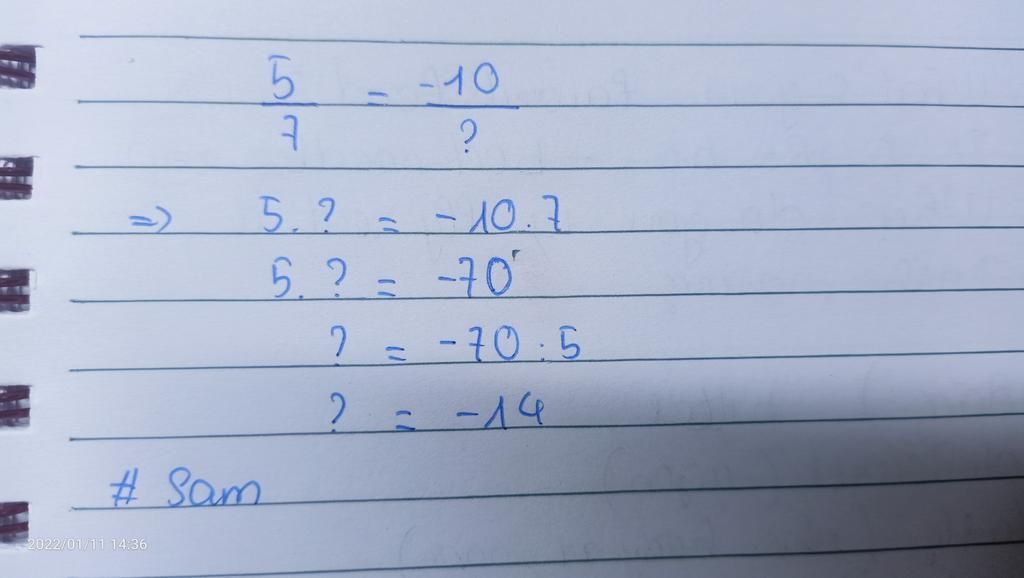 5/7 = -10/?
=> 5.? = -10.7
5.? = -70
? = -70:5
? = -14
# Sam
2022/01/11 14:36